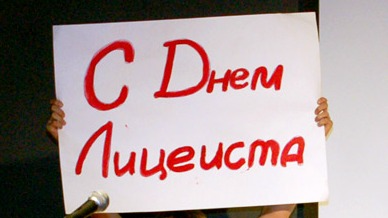 С Днем
Лицеиста